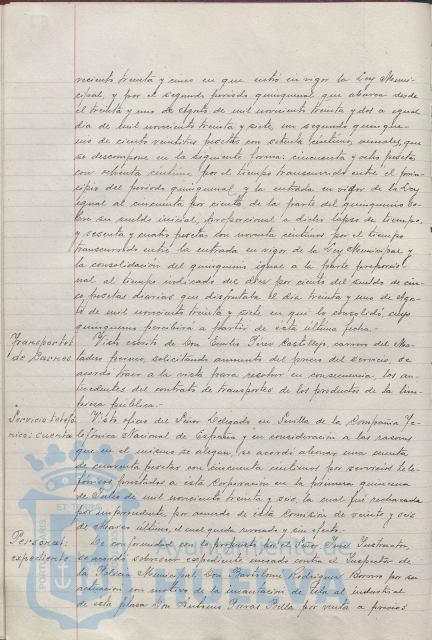 veciento treinta y cinco en que entró en vigor la Ley Muni-
cipal, y por el segundo periodo quinquenal que abarca desde
el treinta y uno de Agosto de mil novecientos treinta y dos a igual
dia de mil novecientos treinta y siete, un segundo quinque-
nio de ciento veintitres pesetas con setenta céntimos, anuales, que
se descompone en la siguiente forma: cincuenta y ocho pesetas
con setenta céntimos por el tiempo transcurrido entre el prin-
cipio del periodo quinquenal y la entrada en vigor de la Ley
igual al cincuenta por ciento de la parte del quinquenio so-
bre su sueldo inicial, proporcional a dicho lapso de tiempo,
y sesenta y cuatro pesetas con noventa céntimos por el tiempo
transcurrido entre la entrada en vigor de la Ley Municipal y
la consolidación del quinquenio igual a la parte proporcio-
nal al tiempo indicado del diez por ciento del sueldo de cin-
co pesetas diarias que disfrutaba el dia treinta y uno de Agos-
to de mil novecientos treinta y siete en que lo consolidó, cuyo
quinquenio percibirá a partir de esta última fecha.
Transportes Visto escrito de Don Emilio Pérez Castillejo, carrero del Ma-
de Carnes. tadero porcino, solicitando aumento del precio del servicio, se
acordó traer a la vista para resolver en consecuencia, los an-
tecedentes del contrato de transportes de los productos de la lim-
pieza pública.
Servicio telefó- Visto oficio del Señor Delegado en Sevilla de la Compañia Te-
nico: cuenta lefónica Nacional de España y en consideración a las razones
que en el mismo se alegan, se acordó abonar una cuenta
de cuarenta pesetas con cincuenta céntimos por servicios tele-
fónicos prestados a esta Corporación en la primera quincena
de Julio de mil novecientos treinta y seis, la cual fué rechazada
por improcedente, por acuerdo de esta Comisión de veinte y seis
de Marzo último, el cual queda revocado y sin efecto.
Personal: De conformidad con lo propuesto por el Señor Juez Instructor,
expediente se acordó sobreseer expediente incoado contra el Inspector de
la Policía Municipal, Don Bartolomé Rodriguez Borrero por su
actuación con motivo de la incautación de tela al industrial
de esta plaza Don Antonio Porras por venta a precios
Ayuntamiento de
HUELVA